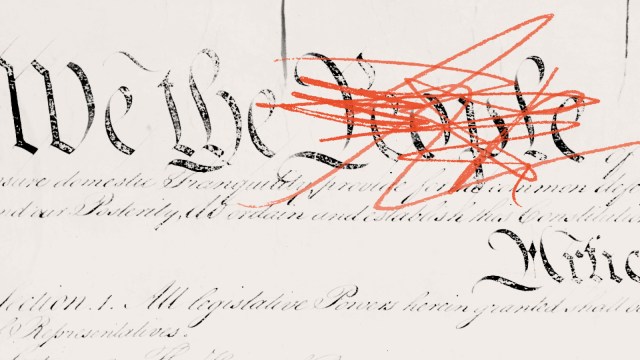 We the People
sure domestic Tranquility, provide for common
and our Posterity, do ordain and establish this Constitu
Artic
Section. 1. All legislative Powers herein granted shall
Representatives.